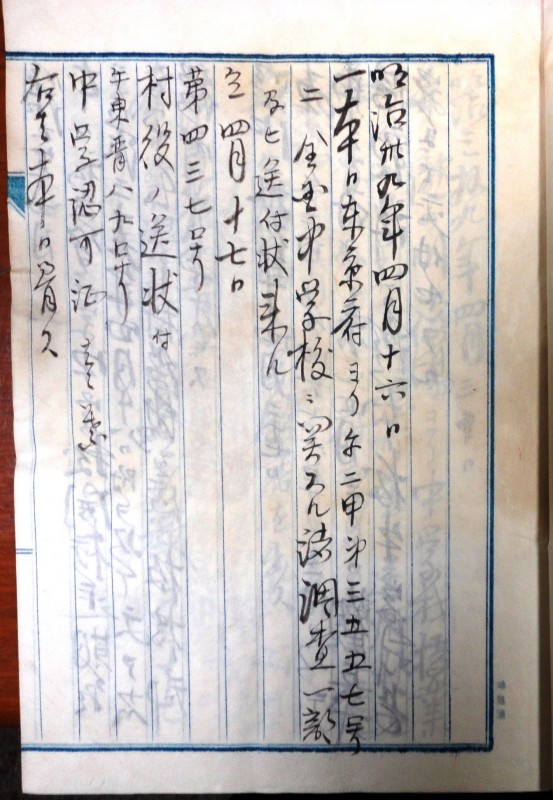 明治卅九年四月十六日
一本日東京府ヨリ午二甲第三五五七号
ニ 中学校ニ関スル諸調査一部
及ビ送付状来ル
仝四月十七日
第四三七号
村役ノ送状付
午東普八九号
中学認可証
右 本日